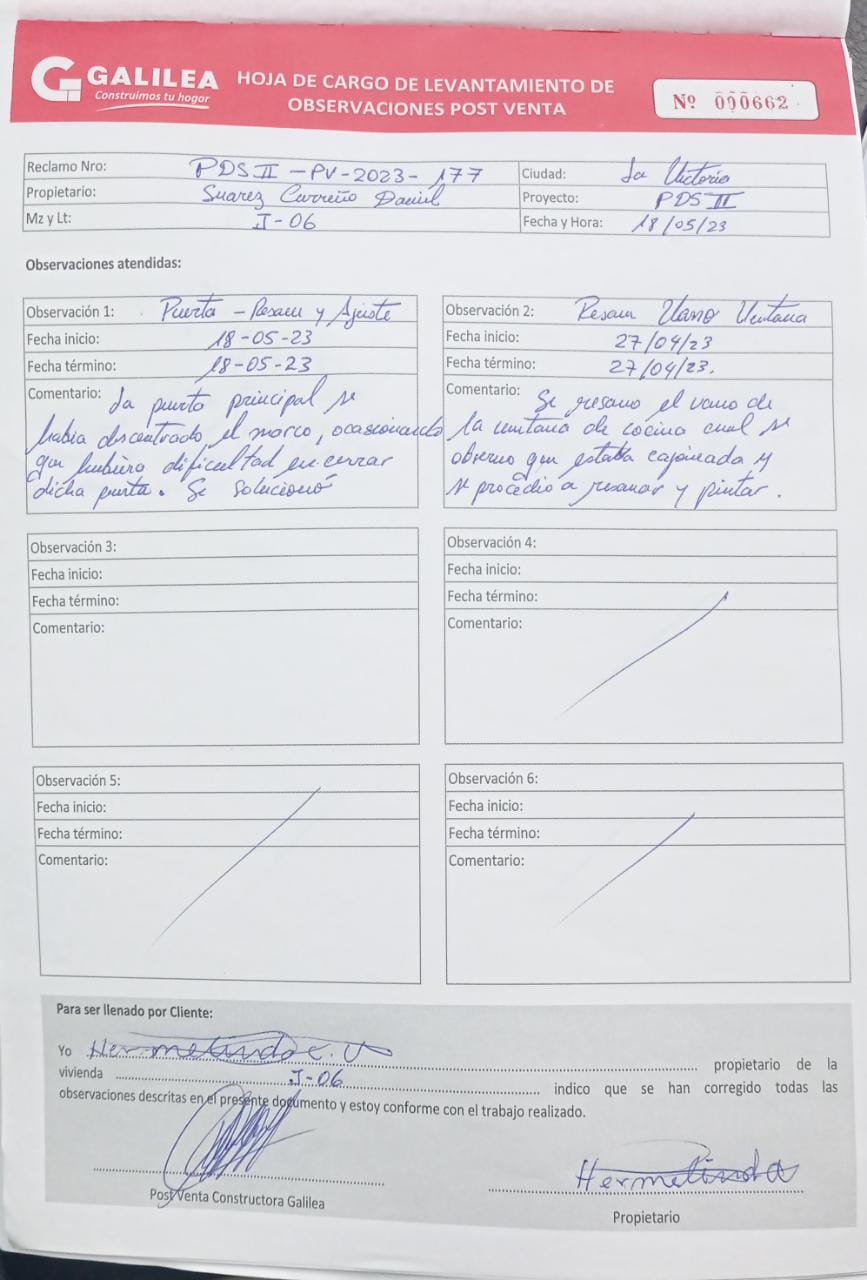 GALILEA
Construimos tu hogar
HOJA DE CARGO DE LEVANTAMIENTO DE
OBSERVACIONES POST VENTA
Nº 000662
Reclamo Nro: PDS II - PV - 2023 - 177
Ciudad: La Victoria
Propietario: Suarez Carreño Daniel
Proyecto: PDS II
Mz y Lt: I-06
Fecha y Hora: 18/05/23
Observaciones atendidas:
Observación 1: Puerta - Resane y Ajuste
Fecha inicio: 18-05-23
Fecha término: 18-05-23
Comentario: La puerta principal se
habia descentrado el marco, ocasionando
que hubiera dificultad en cerrar
dicha puerta. Se solucionó
Observación 2: Resane Vano Ventana
Fecha inicio: 27/04/23
Fecha término: 27/04/23.
Comentario: Se resano el vano de
la ventana de cocina cual se
observo que estaba cajoneada y
se procedio a resanar y pintar.
Observación 3:
Fecha inicio:
Fecha término:
Comentario:
Observación 4:
Fecha inicio:
Fecha término:
Comentario:
Observación 5:
Fecha inicio:
Fecha término:
Comentario:
Observación 6:
Fecha inicio:
Fecha término:
Comentario:
Para ser llenado por Cliente:
Yo Hermelinda C. V propietario de la
vivienda I-06 indico que se han corregido todas las
observaciones descritas en el presente documento y estoy conforme con el trabajo realizado.
Hermelinda
Post Venta Constructora Galilea
Propietario